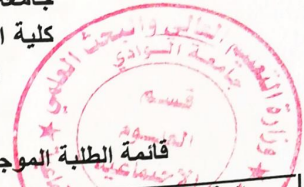 جامعة
كلية ا
وزارة التعليم العالي والبحث العلمي
جامعة الوادي
قسم
العلوم
الاجتماعية
قائمة الطلبة الموج